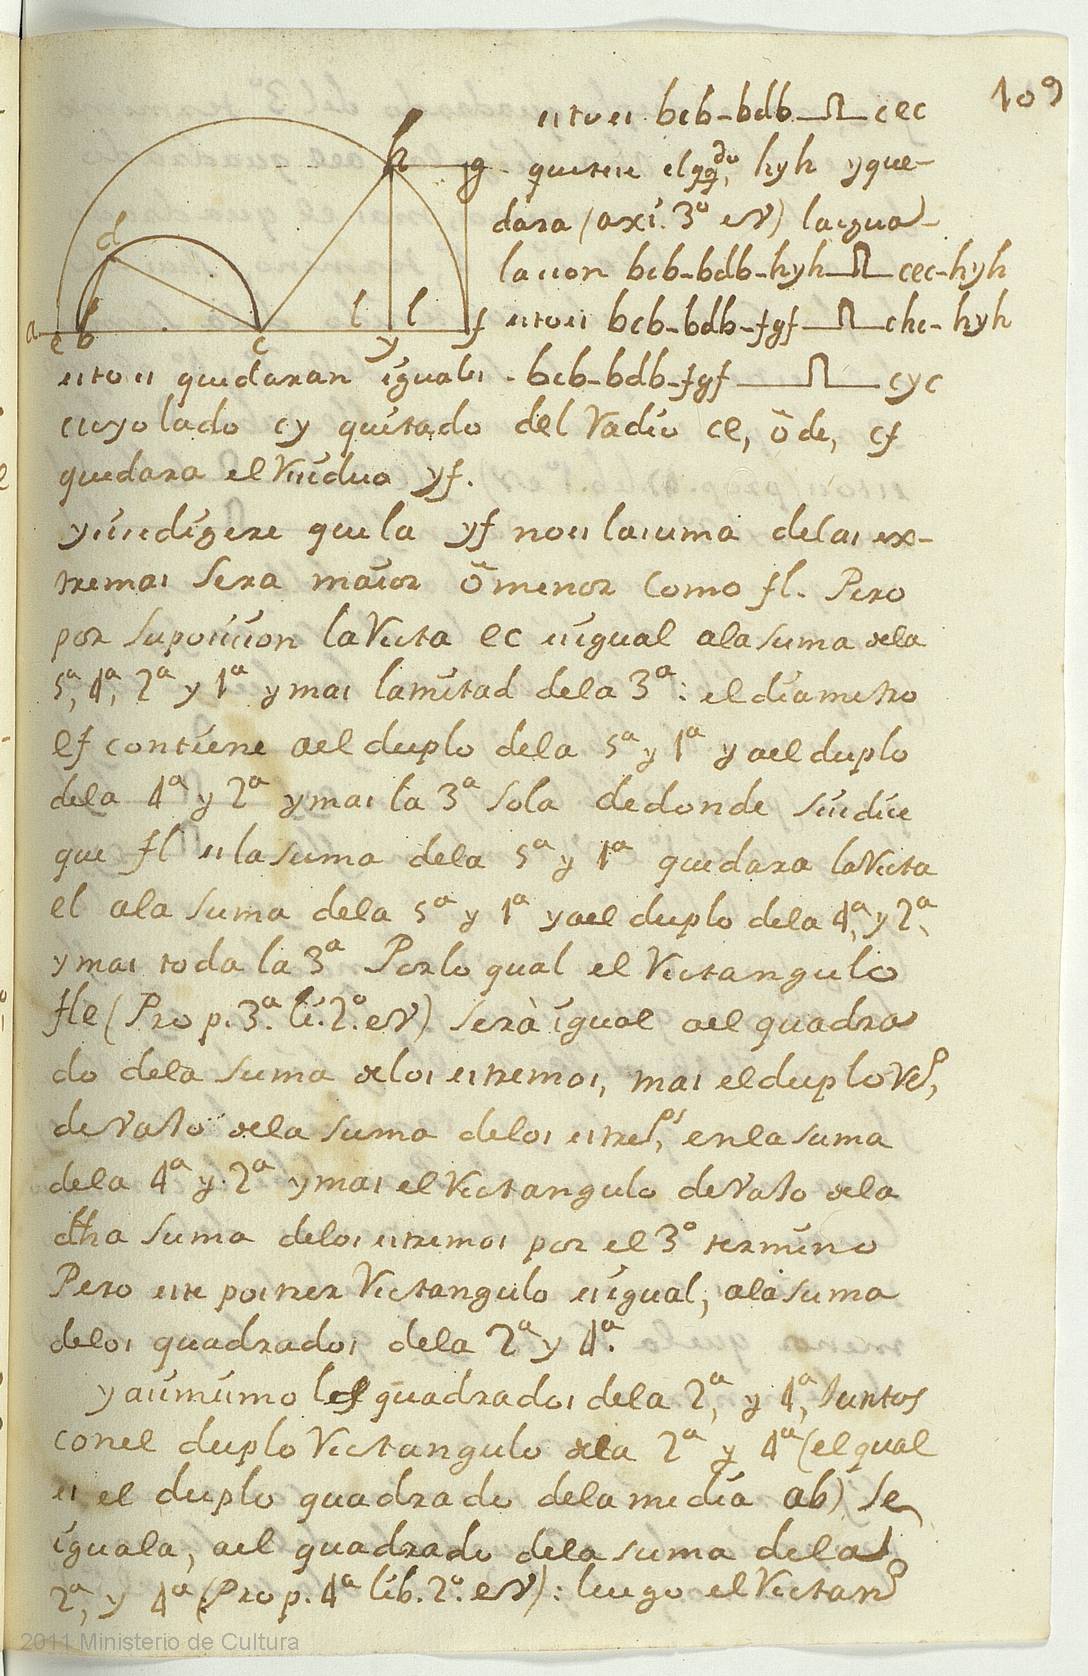 109
esto es bcb-bdb ⎍ cec
quitese el qq.do hyh y que-
dara (axi. 3º ev) la igua-
lacion bcb-bdb-hyh ⎍ cec-hyh
esto es bcb-bdb-fgf ⎍ chc-hyh
h g d l l a e b c y f
esto es quedaran iguales. bcb-bdb-fgf ⎍ cyc
cuyo lado cy quitado del Radio ce, ö de, cf
quedara el residuo yf.
y si se digere que la yf no es la suma de las ex-
tremas sera maior ö menor como fl. Pero
por suposicion la Recta ec es igual a la suma de la
5ª, 4ª, 2ª y 1ª y mas la mitad de la 3ª: el diametro
ef contiene a el duplo de la 5ª y 1ª y a el duplo
de la 4ª y 2ª y mas la 3ª sola de donde si se dice
que fl es la suma de la 5ª y 1ª quedara la Recta
el a la suma de la 5ª y 1ª y a el duplo de la 4ª, y 2ª,
y mas toda la 3ª Por lo qual el Rectangulo
fle (Prop. 3ª. li. 2º. ev) serà igual a el quadra
do de la suma de los estremos, mas el duplo Reº,
de Vajo de la suma de los estreps, en la suma
de la 4ª y 2ª y mas el Rectangulo de Vajo de la
dha suma de los estremos por el 3º termino
Pero este postrer Rectangulo es igual, a la suma
de los quadrados de la 2ª y 4ª.
y asi mismo los quadrados de la 2ª, y 4ª, Juntos
con el duplo Rectangulo de la 2ª y 4ª (el qual
es el duplo quadrado de la media ab) se
iguala, a el quadrado de la suma de las
2ª, y 4ª (Prop. 4ª lib. 2º. ev): luego el Rectanº
2011 Ministerio de Cultura